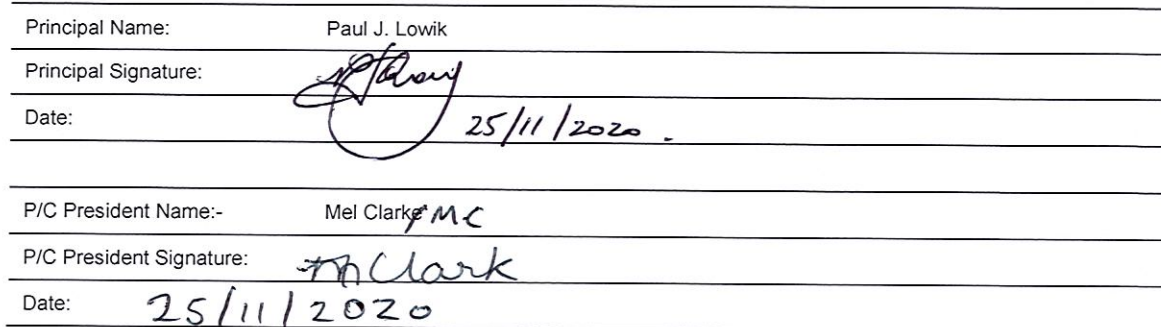 Principal Name: Paul J. Lowik
Principal Signature:
Date: 25/11/2020.
P/C President Name:- Mel Clarke MC
P/C President Signature: M Clark
Date: 25/11/2020